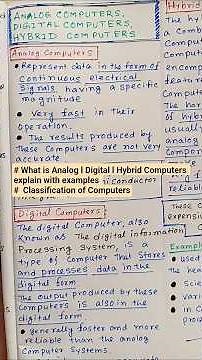 ANALOG COMPUTERS,
DIGITAL COMPUTERS,
HYBRID COMPUTERS
Analog Computers
• Represent data in the form of
continuous electrical
Signals having a specific
magnitude
• Very fast in their
operation
• The results produced by
These computers are not very
accurate
# What is Analog l Digital l Hybrid Computers
explain with examples
# Classification of Computers
Digital Computers
The digital Computer, also
Known as The digital information
Processing System, is a
type of Computer That Stores
and processes data in the
digital form
The output produced by these
Computers is also in the
digital form.
• generally faster and more
reliable than the analog
Computer Systems
Hybrid
The hy
a comb
Comput
Comp
encom
featur
Comp
The
of
usually
analog
Comp
reliab
These
expensi
Example
used
the
Scie
vari
in C
proc